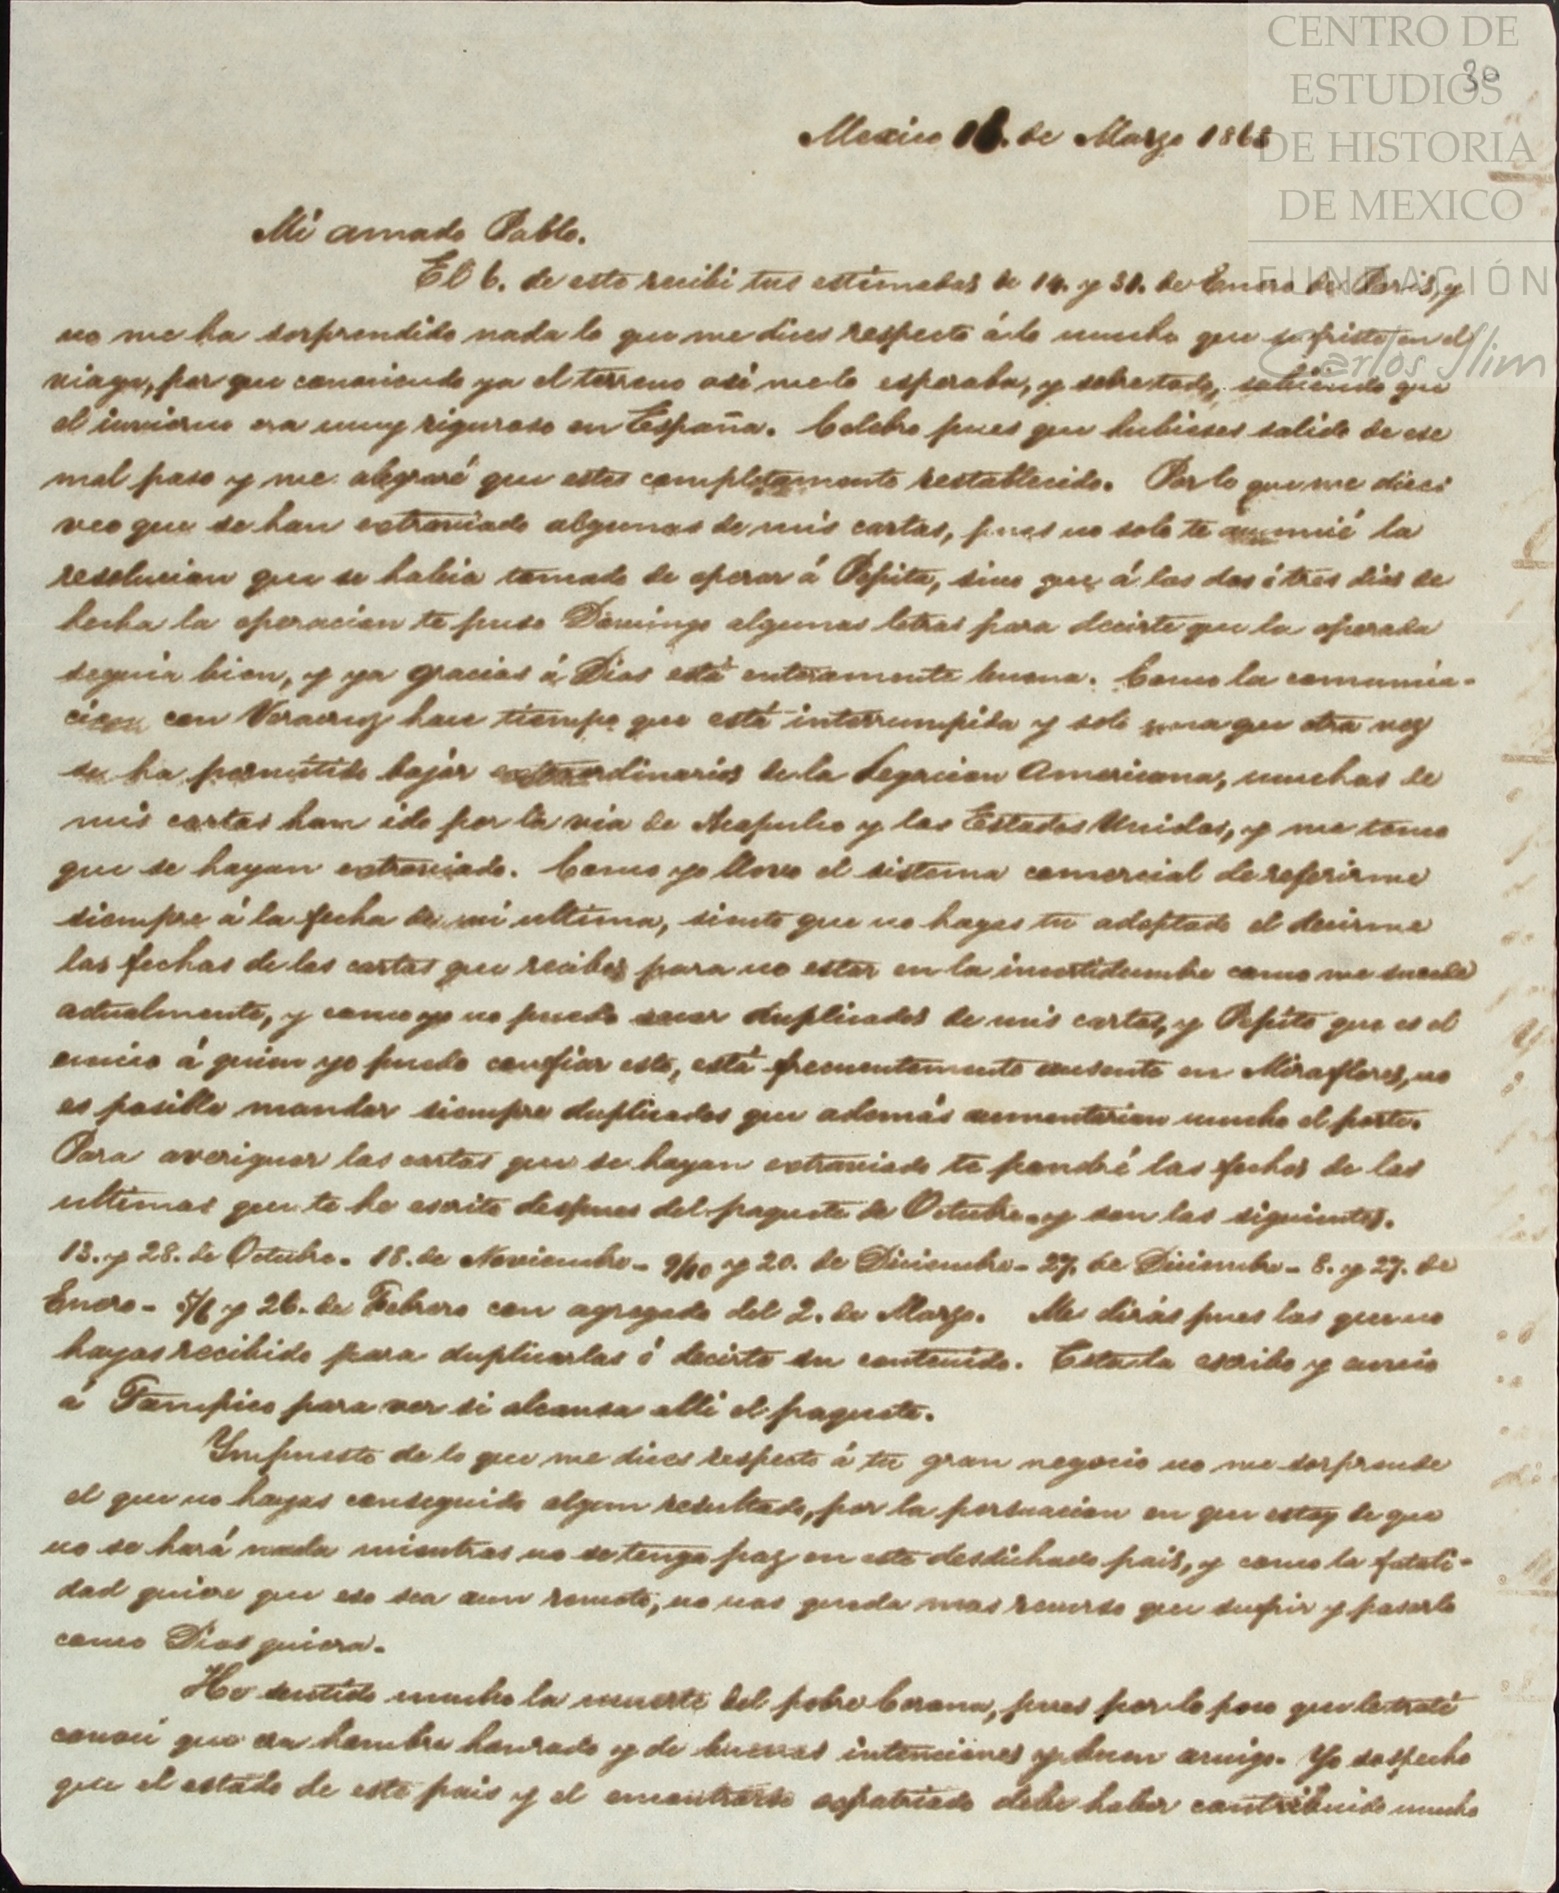 CENTRO DE
ESTUDIOS
DE HISTORIA
DE MEXICO
FUNDACIÓN
Carlos Slim
30
Mexico de Marzo 1868
Mi amado Pablo.
El 6. de este recibi tus estimadas de 14. y 31. de Enero de Paris, y
no me ha sorprendido nada lo que me dices respecto á lo mucho que sufriste en el
viage, por que conociendo ya el terreno asi me lo esperaba, y sobretodo, sabiendo que
el invierno era muy riguroso en España. Celebro pues que hubieses salido de ese
mal paso y me alegraré que estes completamente restablecido. Por lo que me dices
veo que se han extraviado algunas de mis cartas, pues no solo te anuncié la
resolucion que se habia tomado de operar á Pepita, sino que á los dos ó tres dias de
hecha la operacion te puso Domingo algunas letras para decirte que la operada
seguia bien, y ya gracias á Dios está enteramente buena. Como la comunica-
cion con Veracruz hace tiempo que está interrumpida y solo una que otra vez
se ha permitido bajar extraordinarios de la Legacion Americana, muchas de
mis cartas han ido por la via de Acapulco y los Estados Unidos, y me temo
que se hayan extraviado. Como yo llevo el sistema comercial de referirme
siempre á la fecha de mi ultima, siento que no hayas tu adoptado el decirme
las fechas de las cartas que recibes para no estar en la incertidumbre como me sucede
actualmente, y como yo no puedo sacar duplicados de mis cartas, y Pepito que es el
unico á quien yo puedo confiar esto, está frecuentemente ausente en Miraflores, no
es posible mandar siempre duplicados que además aumentarian mucho el porte.
Para averiguar las cartas que se hayan extraviado te pondré las fechas de las
ultimas que te he escrito despues del paquete de Octubre y son las siguientes.
13. y 28. de Octubre. 18. de Noviembre - 9/10 y 20. de Diciembre - 27. de Diciembre - 8. y 27. de
Enero - 5/6 y 26. de Febrero con agregado del 2. de Marzo. Me dirás pues las que no
hayas recibido para duplicarlas ó decirte su contenido. Esta la escribo y envio
á Tampico para ver si alcansa alli el paquete.
Impuesto de lo que me dices respecto á tu gran negocio no me sorprende
el que no hayas conseguido algun resultado, por la persuacion en que estoy de que
no se hará nada mientras no se tenga paz en este desdichado pais, y como la fatali-
dad quiere que eso sea aun remoto, no nos queda mas recurso que sufrir y pasarlo
como Dios quiera.
He sentido mucho la muerte del pobre Corona, pues por lo poco que le traté
conocí que era hombre honrado y de buenas intenciones y buen amigo. Yo sospecho
que el estado de este pais y el encontrarse expatriado debe haber contribuido mucho